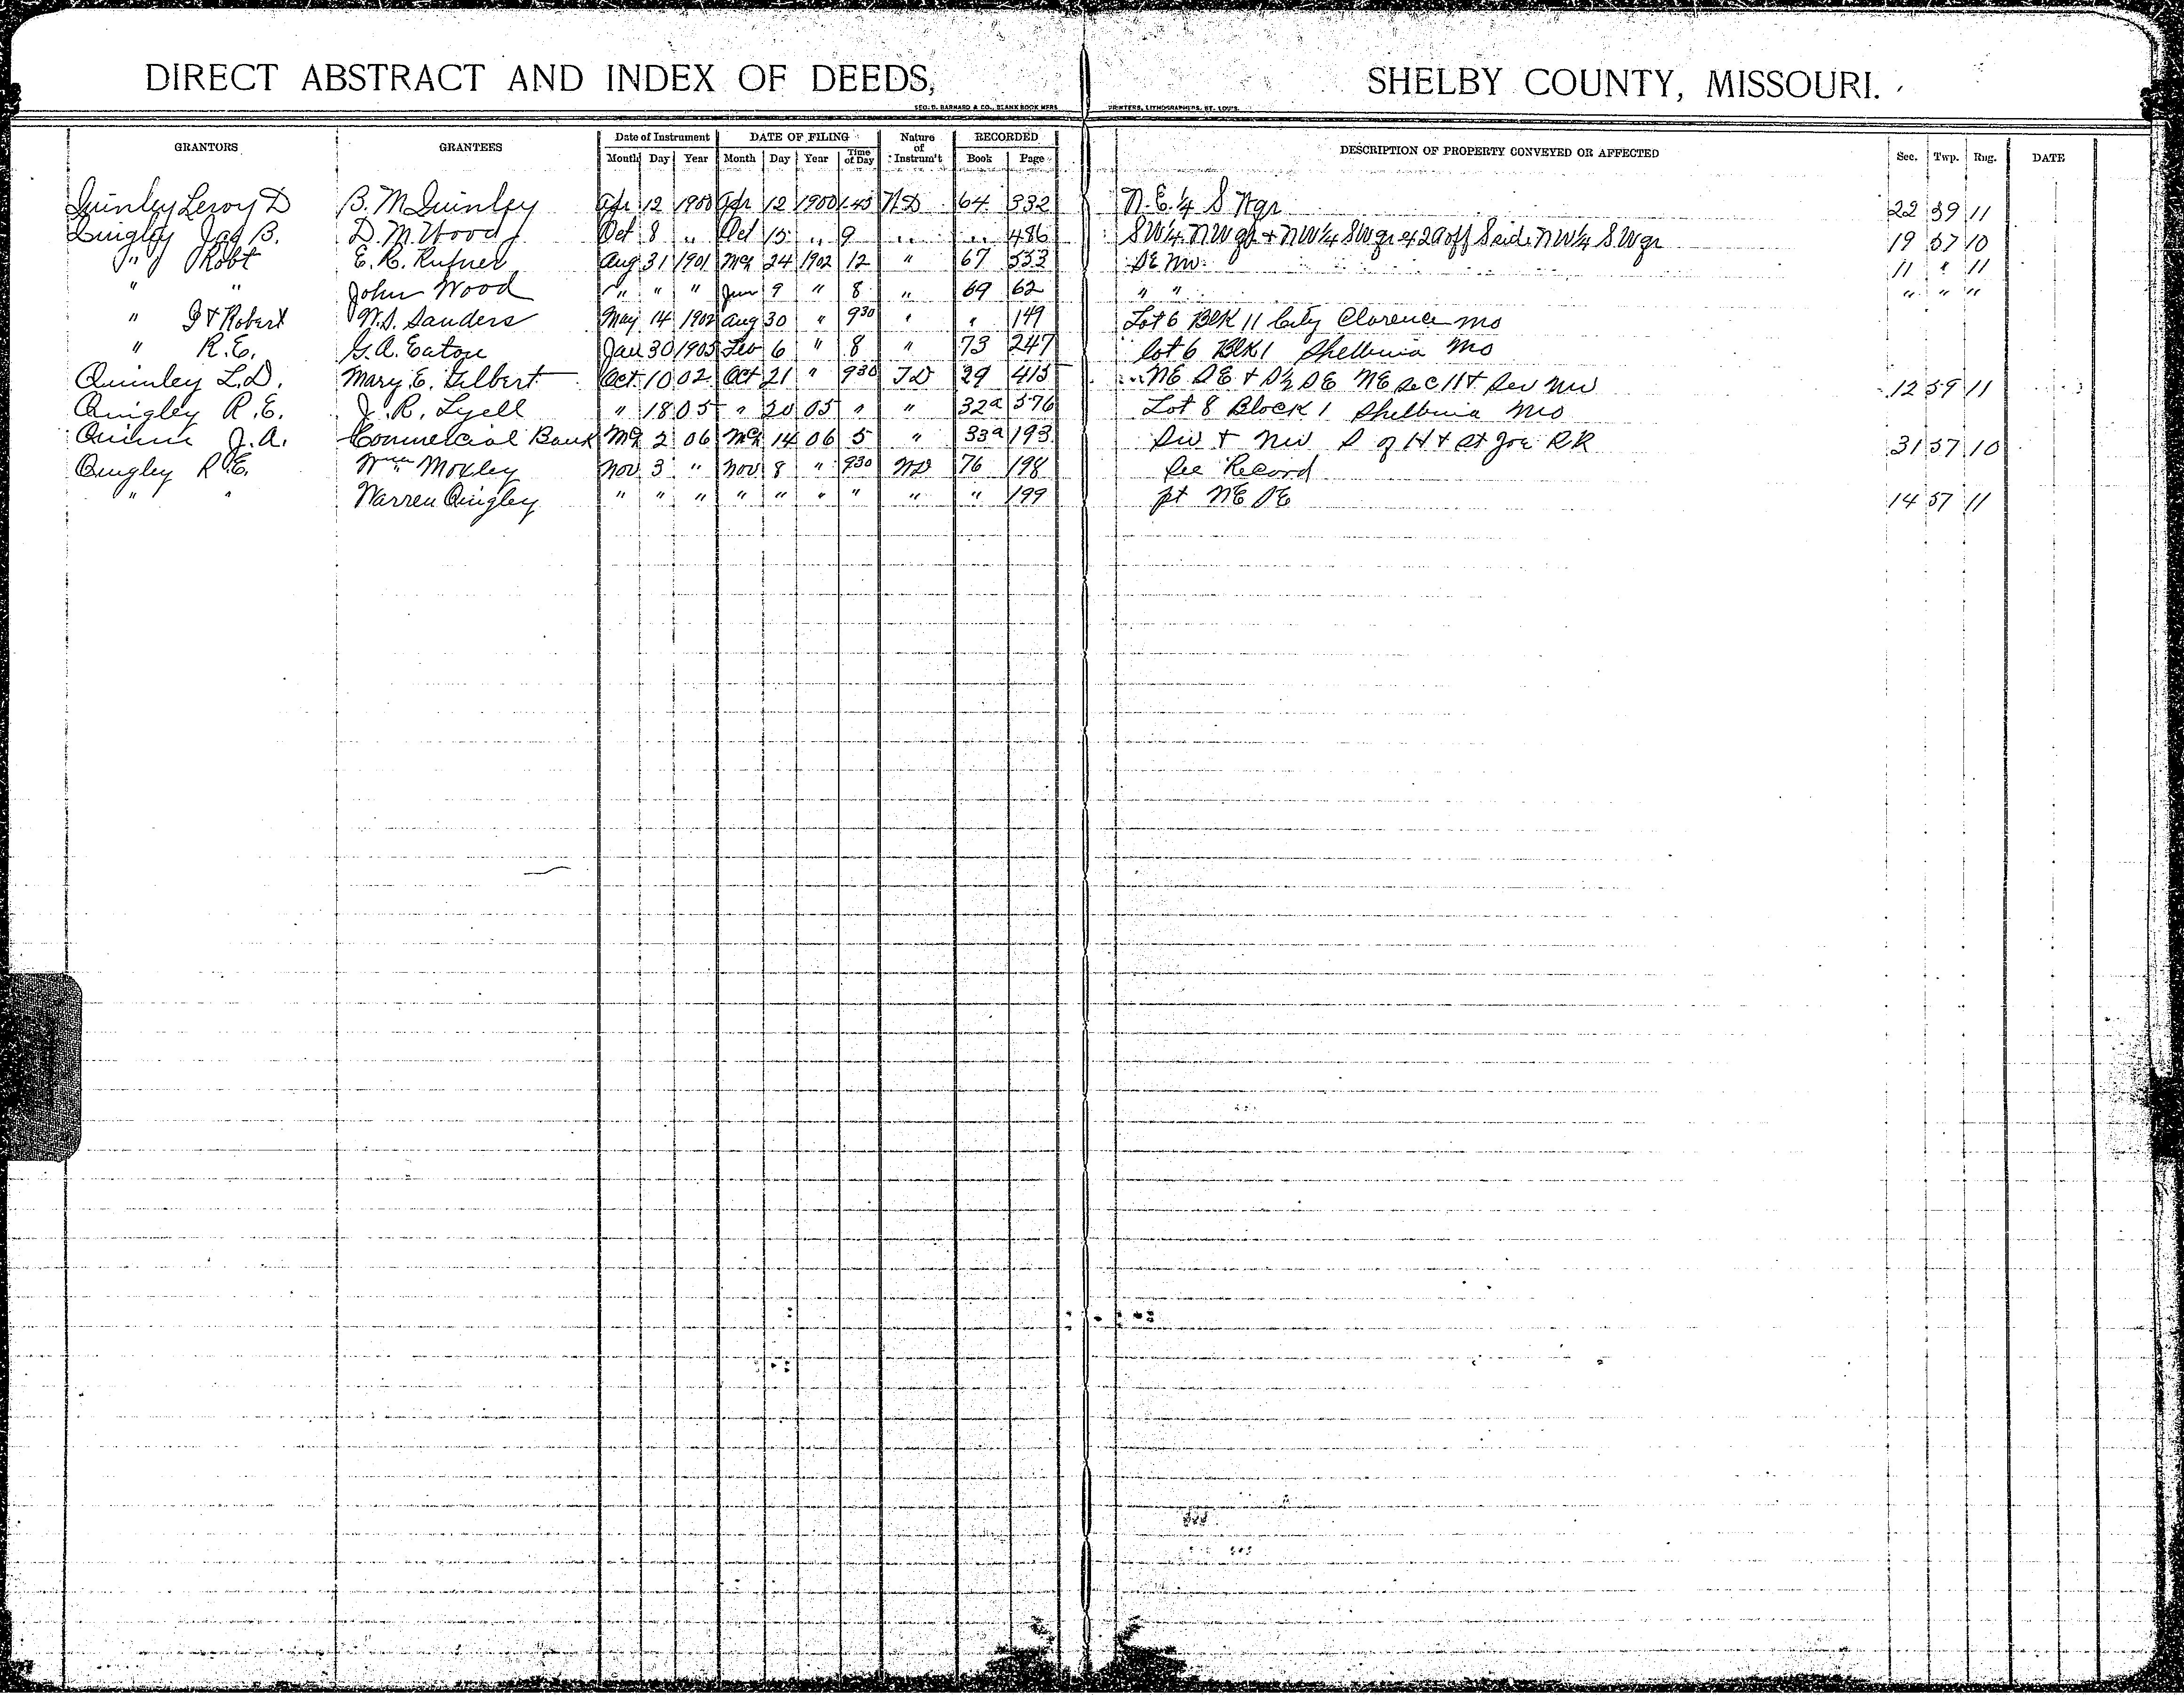 DIRECT ABSTRACT AND INDEX OF DEEDS, SHELBY COUNTY, MISSOURI.
GEO. D. BARNARD & CO., BLANK BOOK MFRS. PRINTERS, LITHOGRAPHERS, ST. LOUIS.
GRANTORS GRANTEES Date of Instrument Month Day Year DATE OF FILING Month Day Year Time of Day Nature of Instrum't RECORDED Book Page DESCRIPTION OF PROPERTY CONVEYED OR AFFECTED Sec. Twp. Rng. DATE
Quinley Leroy D B. M Quinley Apr 12 1900 Apr 12 1900 1.45 WD 64 332 N.E. 1/4 S Wqr 22 59 11
Quigley Jas B. D. M. Wood Oct 8 " Oct 15 " 9 " " 486 SW 1/4 N W qr + NW 1/4 SW qr & 2a off S side NW 1/4 S W qr 19 57 10
" Robt E. R. Rufner Aug 31 1901 Mch 24 1902 12 " 67 553 SE NW 11 " 11
" " John Wood " " " Jun 9 " 8 " 69 62 " " " " "
" I & Robert W. S. Sanders May 14 1902 Aug 30 " 9 30 " " 149 Lot 6 Blk 11 City Clarence Mo
" R. E. G. A. Eaton Jan 30 1905 Feb 6 " 8 " 73 247 lot 6 Blk 1 Shelbina Mo
Quinley L. D. Mary E. Gilbert Oct 10 02 Oct 21 " 9 30 TD 29 415 NE SE + S 1/2 SE NE Sec 11 + SW NW 12 59 11
Quigley R. E. J. R. Lyell " 18 05 " 20 05 " " 32a 576 Lot 8 Block 1 Shelbina Mo
Quinn J. A. Commercial Bank Mch 2 06 Mch 14 06 5 " 33a 193 SW + NW S of H & St Joe RR 31 57 10
Quigley R E. Wm Moxley Nov 3 " Nov 8 " 9 30 WD 76 198 See Record
" " Warren Quigley " " " " " " " " " 199 pt NE SE 14 57 11